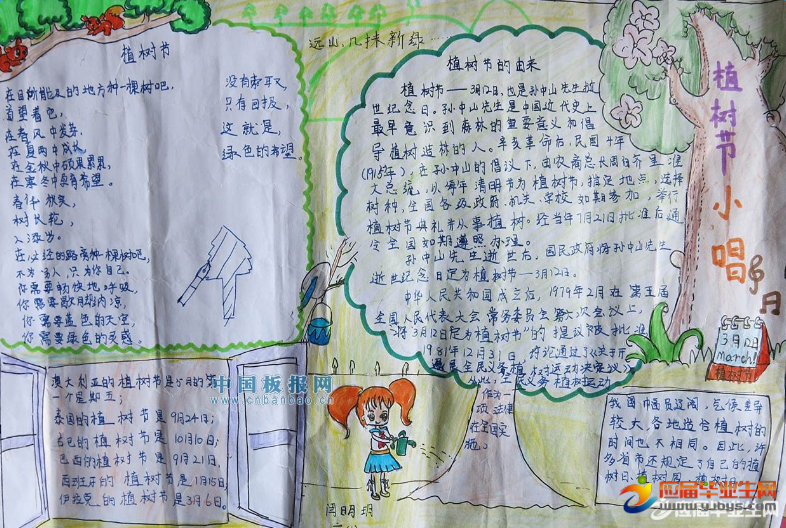 植树节
在目所能及的地方种一棵树吧,
着望着色,
在春风中发芽,
在夏雨中成长,
在金秋中硕果累累,
在寒冬中具有希望。
春作
树长花,
人
在必经的路旁种一棵树吧,
不为
你需要畅快地呼吸,
你需要
你需要蓝色的天空,
你需要绿色的灵感
没有索取,
只有回报,
这就是,
绿色的希望。
远山、几抹新绿……
植树节的由来
植树节——3月12日,也是孙中山先生逝
世纪念日。孙中山先生是中国近代史上
最早意识到森林的重要意义和倡
导植树造林的人。辛亥革命后,民国4年
(1915年),在孙中山的倡议下,由农商总长周自齐呈准
大总统,以每年清明节为植树节,指定地点,选择
树种,全国各级政府、机关、学校如期参加,举行
植树节典礼并从事植树。经当年7月21日批准后通
令全国如期遵照办理。
孙中山先生逝世后,国民政府将孙中山先生
逝世纪念日定为植树节——3月12日。
中华人民共和国成立后,1979年2月在第五届
全国人民代表大会常务委员会第六次会议上,
"将3月12日定为植树节"的提议被批准
1981年12月31日,
全民义务植树运动
植树节小唱
3月12日
March!
植树节
澳大利亚的植树节是5月的第
一个星期五;
泰国的植树节是9月24日;
的植树节是10月10日;
巴西的植树节是9月21日,
西班牙的植树节是1月15日;
伊拉克的植树节是3月6日。
中国板报网
www.cnbanbao.cn
我国幅员辽阔,气候差异
较大,各地适合植树的
时间也不相同。因此,许
多省市还规定了自己的植
树日、植树周、植树月。
应届毕业生网
www.yjbys.com